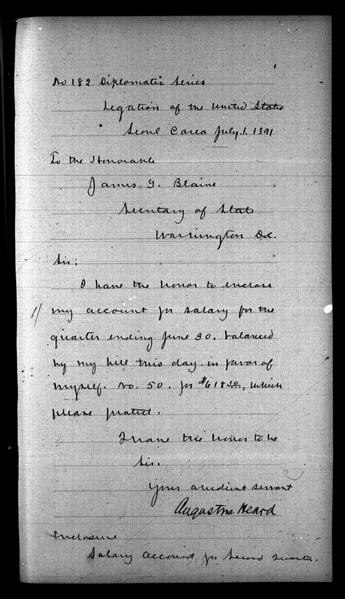 No 182 Diplomatic Series
Legation of the United States
Seoul Corea July 1. 1891
To the Honorable
James G. Blaine
Secretary of State
Washington D.C.
Sir:
I have the honor to enclose
1/ my account for salary for the
quarter ending June 30. balanced
by my bill this day in favor of
myself. No. 50. for $618, which
please protect.
I have the honor to be
Sir.
Your obedient servant
Augustine Heard
Enclosure
Salary Account for Second Quarter.